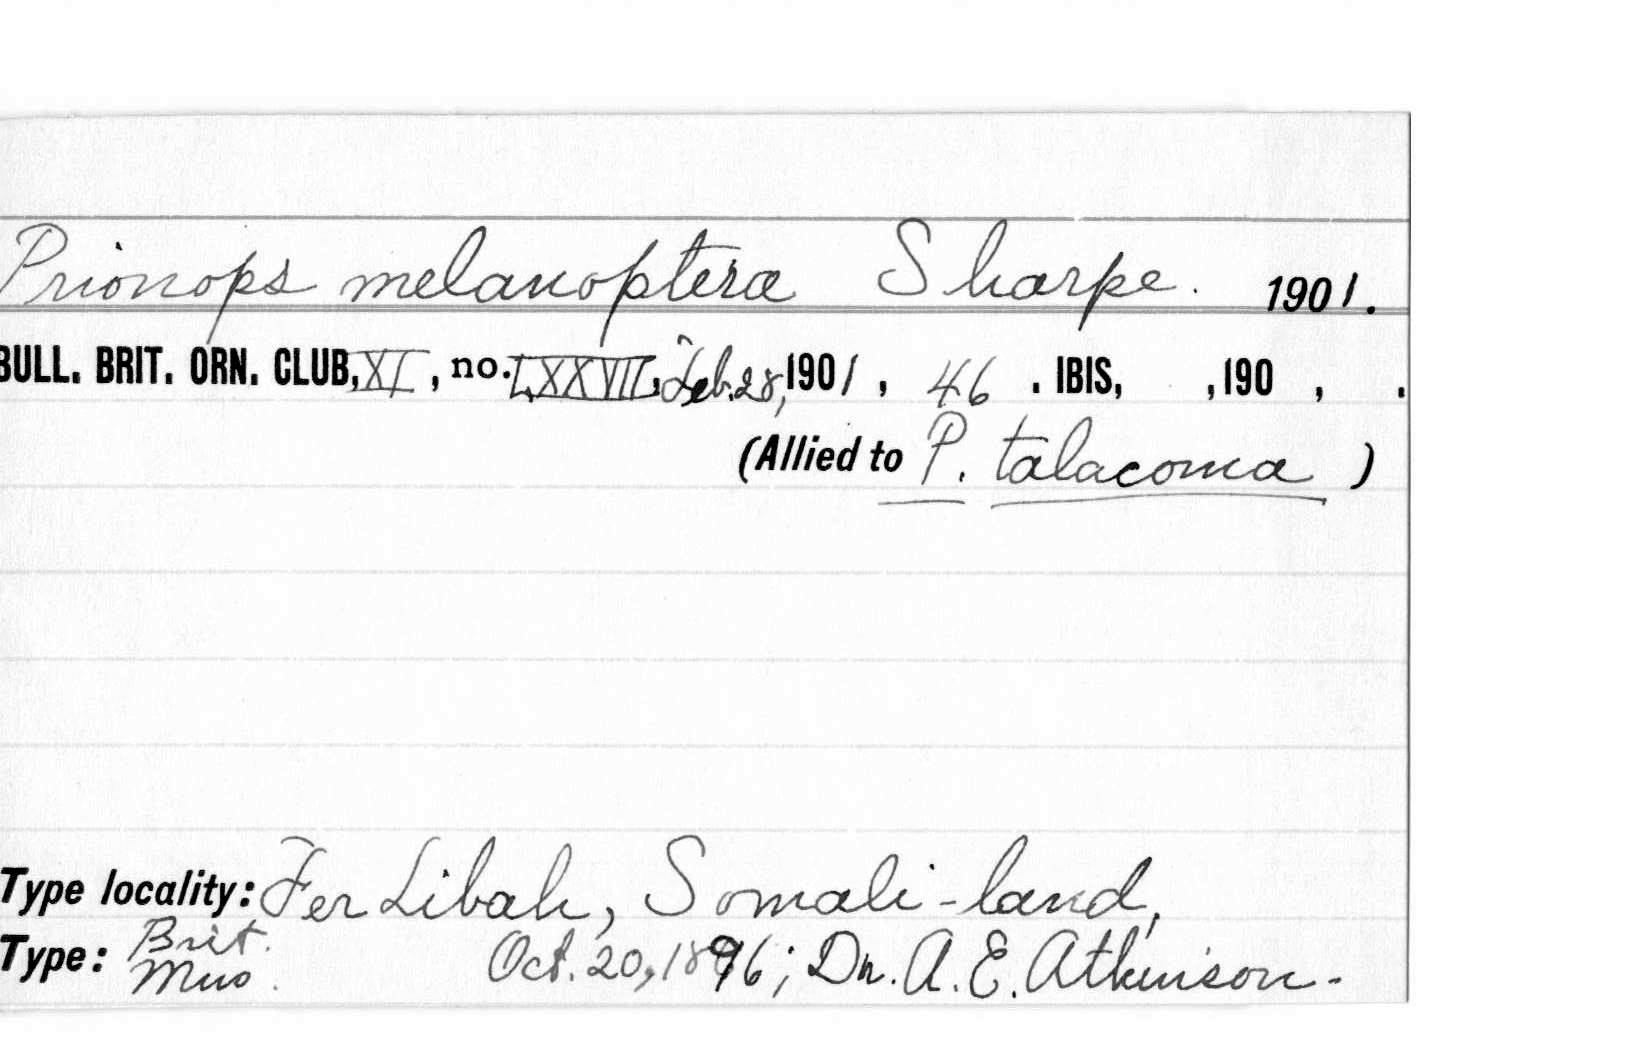 Prionops melanoptera Sharpe. 1901.
BULL. BRIT. ORN. CLUB, XI, no. LXXVII, Feb. 28, 1901, 46. IBIS, , 190 , .
(Allied to P. talacoma)
Type locality: Fer Libah, Somali-land,
Type: Brit. Mus. Oct. 20, 1896; Dr. A. E. Atkinson-